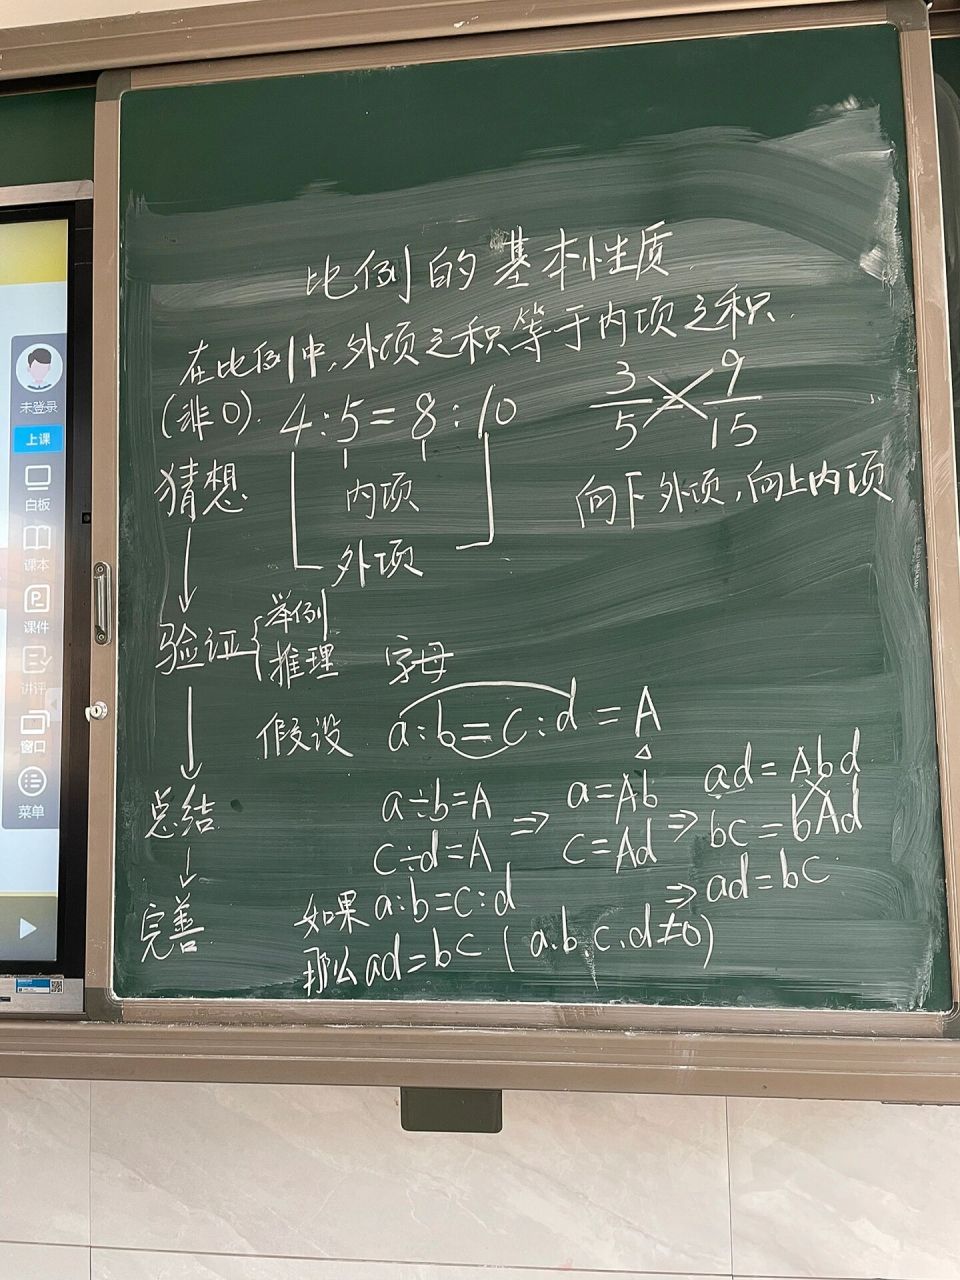 比例的基本性质
在比例中,外项之积等于内项之积.
(非0). 4:5=8:10
3/5=9/15
猜想
内项
向下外项,向上内项
外项
验证{举例
推理 字母
假设 a:b=c:d=A
a÷b=A ⇒ a=Ab ⇒ ad=Abd
c÷d=A c=Ad bc=bAd
总结
⇒ad=bc
如果a:b=c:d
完善
那么ad=bc(a.b c.d≠0)
未登录
上课
白板
课本
课件
讲评
窗口
菜单